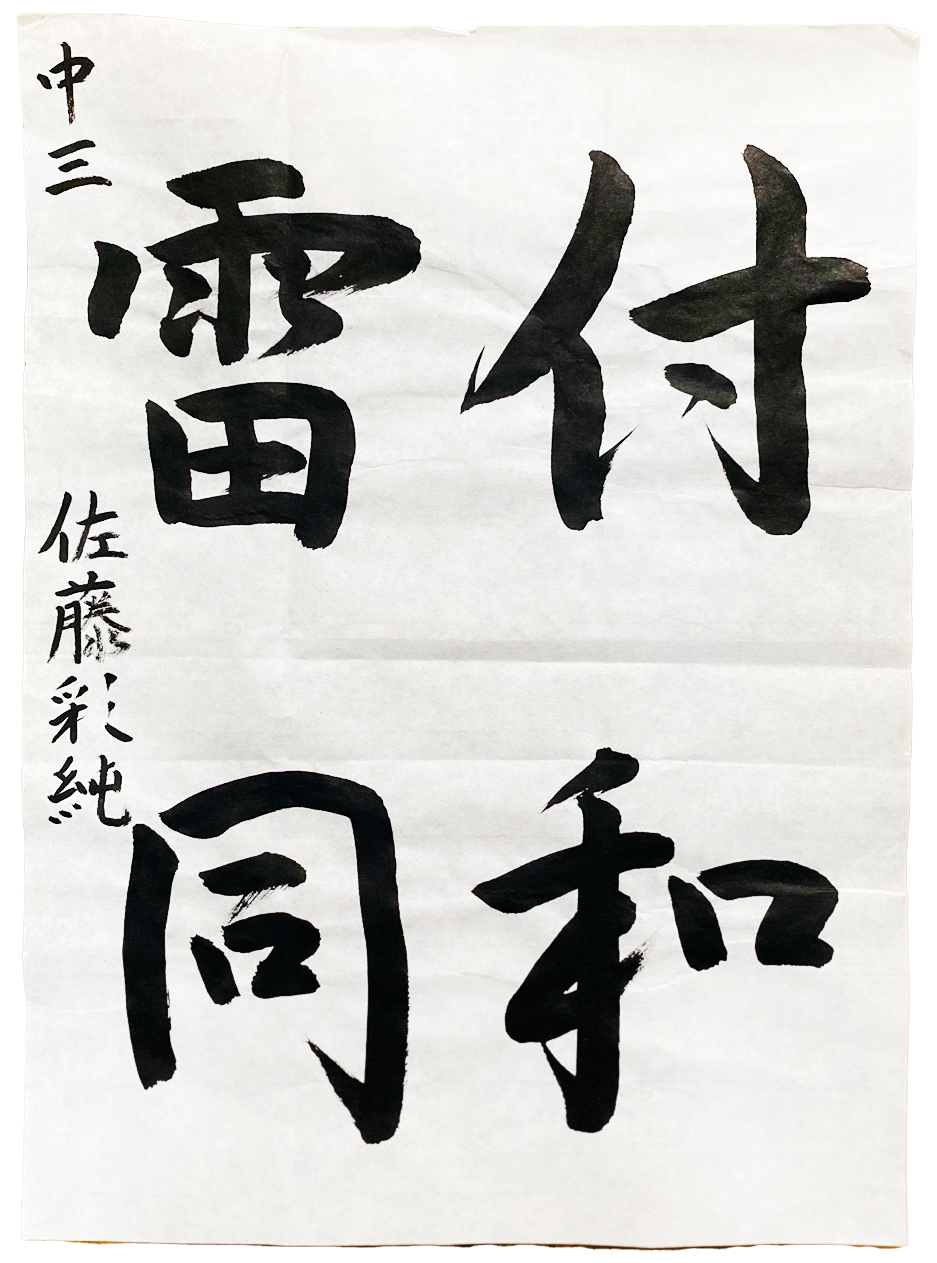 付和
雷同
中三 佐藤彩純